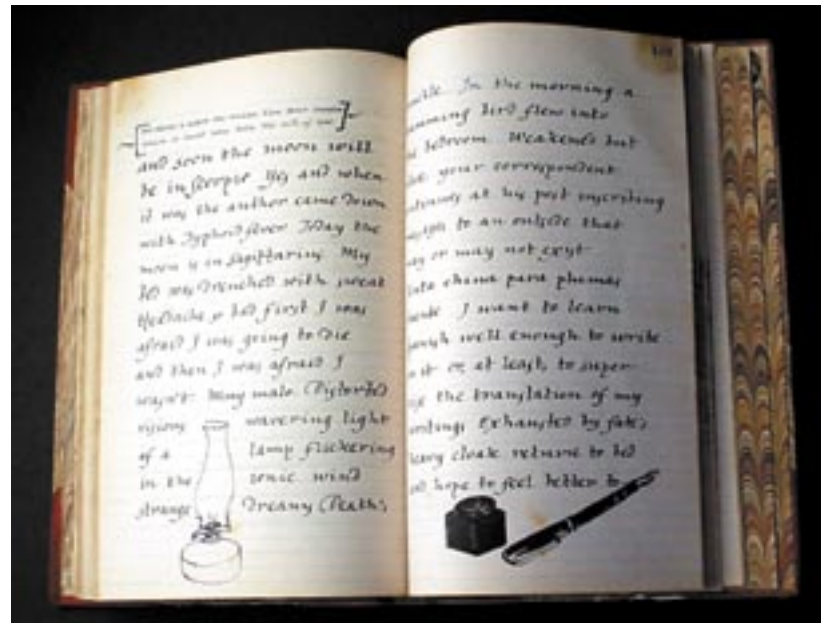 and soon the moon will
be in Scorpio Yes and when
it was the author came down
with Typhoid fever Today the
moon is in Sagittarius My
bed was drenched with sweat
Headache so bad first I was
afraid I was going to die
and then I was afraid I
wasn't Muy malo (Distorted
visions wavering light
of a lamp flickering
in the sonic wind
strange Dreamy (Death,
In the morning a
humming bird flew into
bedroom. Weakened but
your correspondent
at his post inscribing
to an outside that
or may not exist
chana para plumas
I want to learn
well enough to write
in it or, at least, to super
the translation of my
writings Exhausted by fate's
heavy cloak return to bed
and hope to feel better to